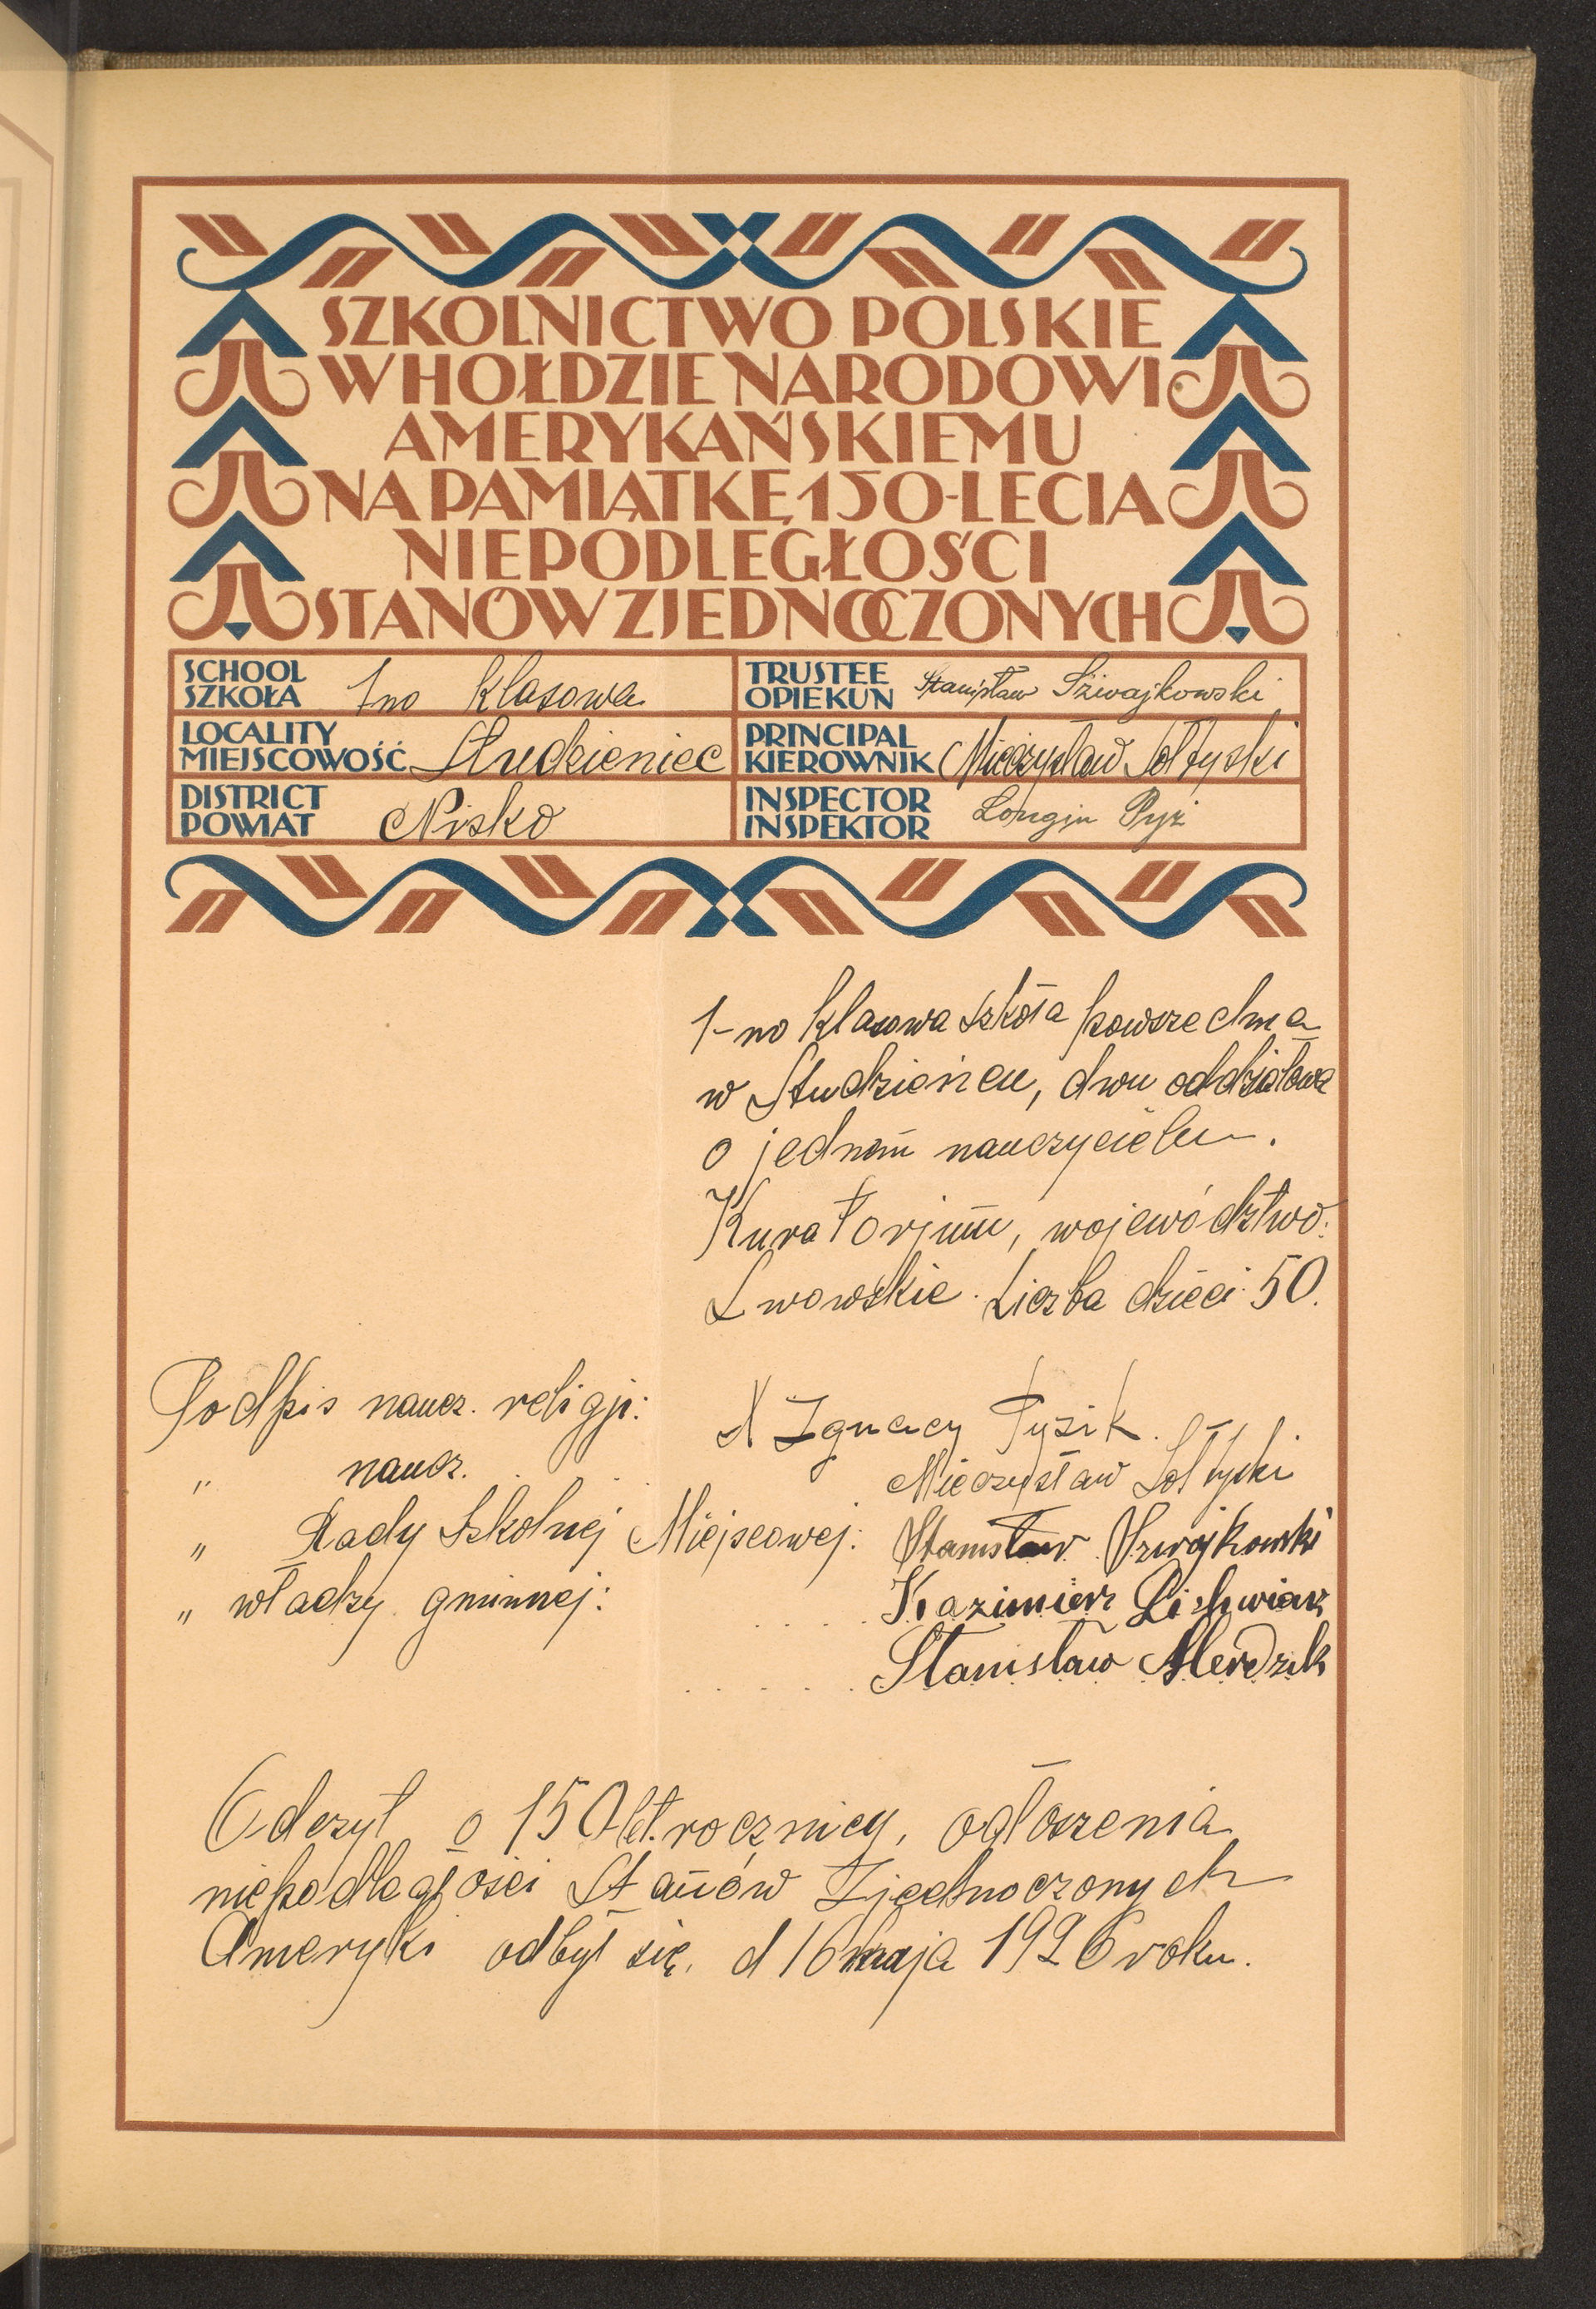 SZKOLNICTWO POLSKIE
W HOŁDZIE NARODOWI
AMERYKAŃSKIEMU
NA PAMIĄTKĘ 150-LECIA
NIEPODLEGŁOŚCI
STANÓW ZJEDNOCZONYCH
SCHOOL
SZKOŁA 1no klasowa
TRUSTEE
OPIEKUN Stanisław Sziwajkowski
LOCALITY
MIEJSCOWOŚĆ Studzieniec
PRINCIPAL
KIEROWNIK Mieczysław Sołtyski
DISTRICT
POWIAT Nisko
INSPECTOR
INSPEKTOR Longin Pyż
1-no klasowa szkoła powszechna
w Studzieńcu, dwu oddziałowa
o jednem nauczycielu.
Kuratorjum, województwo:
Lwowskie. Liczba dzieci: 50.
Podpis naucz. religji: X Ignacy Pyzik.
" naucz. Mieczysław Sołtyski
" Rady Szkolnej Miejscowej: Stanisław Szwajkowski
" władzy gminnej: ..... Kazimierz
..... Stanisław
Odczyt o 150 let. rocznicy, ogłoszenia
niepodległości Stanów Zjednoczonych
Ameryki odbył się, d 16 maja 1926 roku.